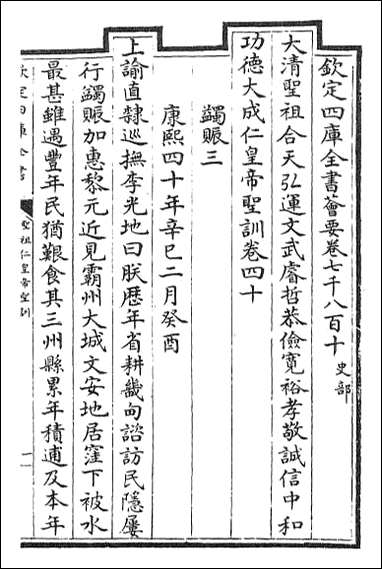 欽定四庫全書薈要卷七千八百十　史部
大清聖祖合天弘運文武睿哲恭儉寬裕孝敬誠信中和
功德大成仁皇帝聖訓卷四十
蠲賑三
康熙四十年辛巳二月癸酉
上諭直隸巡撫李光地曰朕歷年省耕畿甸諮訪民隱屢
行蠲賑加惠黎元近見霸州大城文安地居窪下被水
最甚雖遇豐年民猶艱食其三州縣累年積逋及本年
欽定四庫全書
聖祖仁皇帝聖訓
一